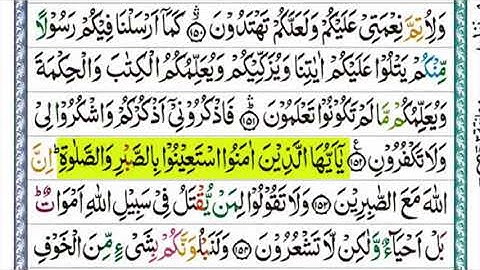 وَلِاُتِمَّ نِعْمَتِیْ عَلَیْكُمْ وَلَعَلَّكُمْ تَهْتَدُوْنَ ۝١٥٠ كَمَاۤ اَرْسَلْنَا فِیْكُمْ رَسُوْلًا
مِّنْكُمْ یَتْلُوْا عَلَیْكُمْ اٰیٰتِنَا وَیُزَكِّیْكُمْ وَیُعَلِّمُكُمُ الْكِتٰبَ وَالْحِكْمَةَ
وَیُعَلِّمُكُمْ مَّا لَمْ تَكُوْنُوْا تَعْلَمُوْنَ ۝١٥١ فَاذْكُرُوْنِیْۤ اَذْكُرْكُمْ وَاشْكُرُوْا لِیْ
وَلَا تَكْفُرُوْنِ ۝١٥٢ یٰۤاَیُّهَا الَّذِیْنَ اٰمَنُوا اسْتَعِیْنُوْا بِالصَّبْرِ وَالصَّلٰوةِ ؕ اِنَّ
اللّٰهَ مَعَ الصّٰبِرِیْنَ ۝١٥٣ وَلَا تَقُوْلُوْا لِمَنْ یُّقْتَلُ فِیْ سَبِیْلِ اللّٰهِ اَمْوَاتٌ ؕ
بَلْ اَحْیَآءٌ وَّلٰكِنْ لَّا تَشْعُرُوْنَ ۝١٥٤ وَلَنَبْلُوَنَّكُمْ بِشَیْءٍ مِّنَ الْخَوْفِ